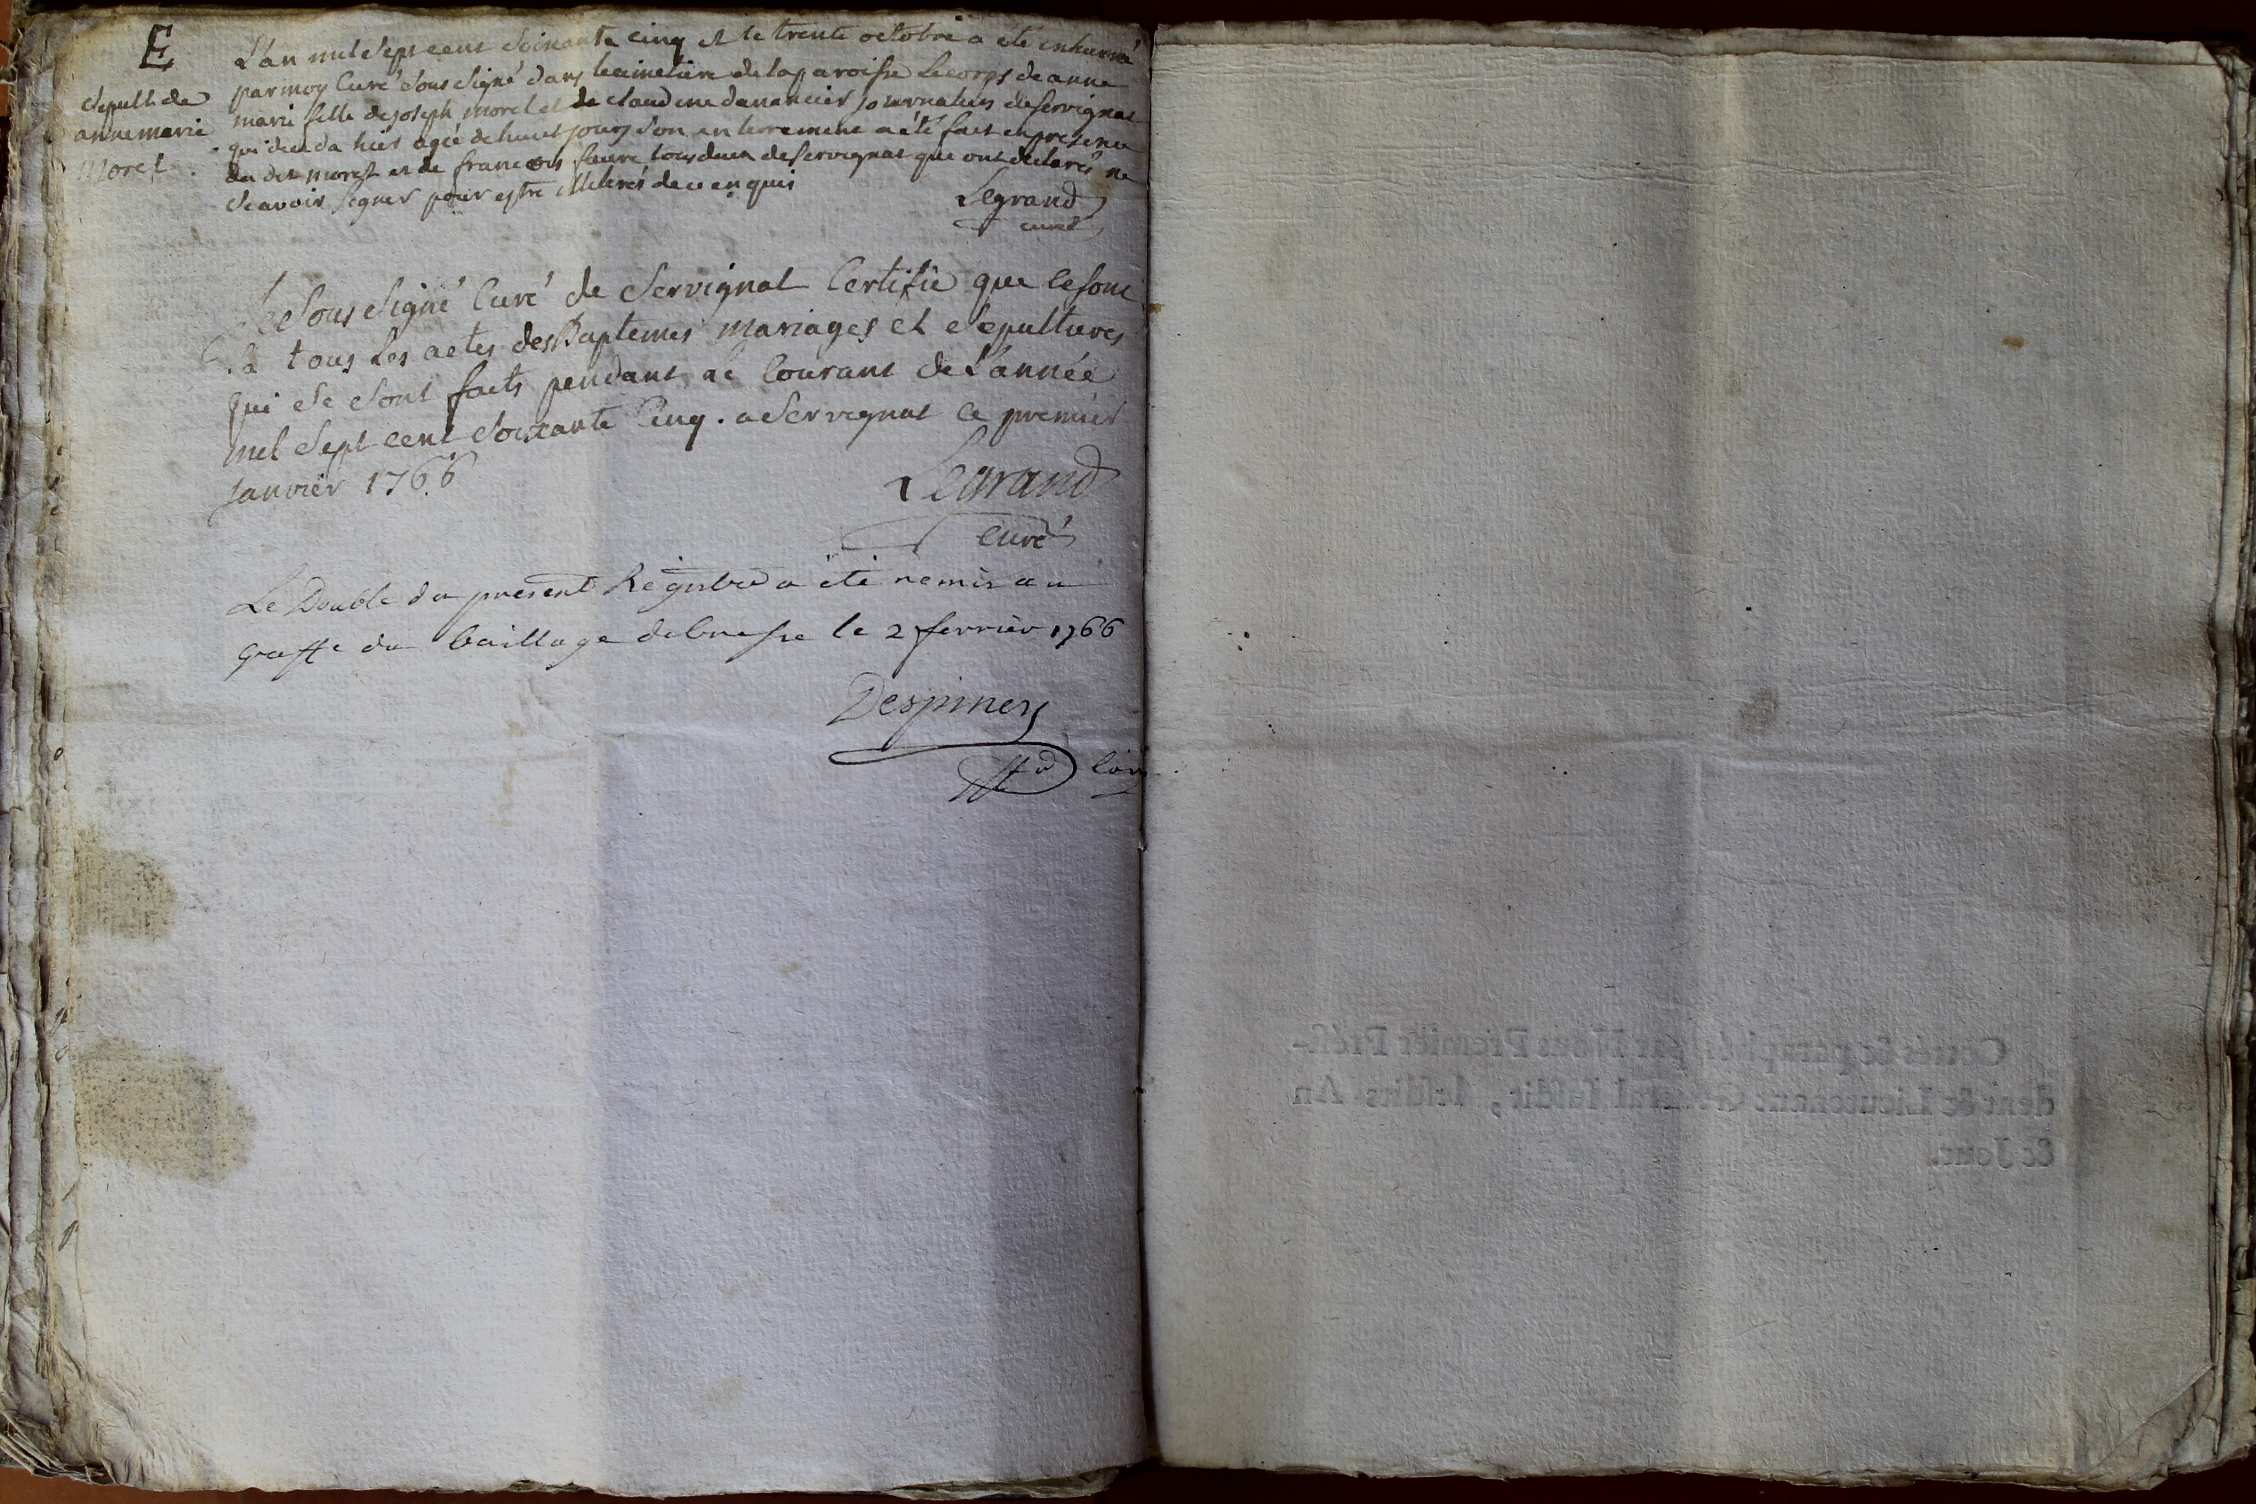 E
Sepult. de
anne marie
Morel.
L'an mil sept cent soixante cinq et le trente octobre a été inhumé
par moy Curé soussigné dans le cimetiére de la paroisse le corps de anne
marie fille de joseph morel et de claudine danancier journaliers de servignat
qui deceda hier agée de huit jours son enterrement a été fait en presence
du dit morel et de francois faure tous deux de servignat qui ont declarés ne
scavoir signer pour estre illiterés de ce enquis
Legrand
curé
Je Sous signé Curé de Servignat Certifie que ce sont
là tous les actes des Baptemes mariages et sepultures
qui se sont faits pendant le Courant de L'année
mil sept cent soixante Cinq. a Servignat ce premier
Janvier 1766
Legrand
Curé
Le Double du present Registre a été remis au
Greffe du bailliage de bresse le 2 fevrier 1766
Despiney
Cottés & paraphés par Nous Premier Présı-
dent & Lieutenant Général susdit, lesdits An
& Jour.